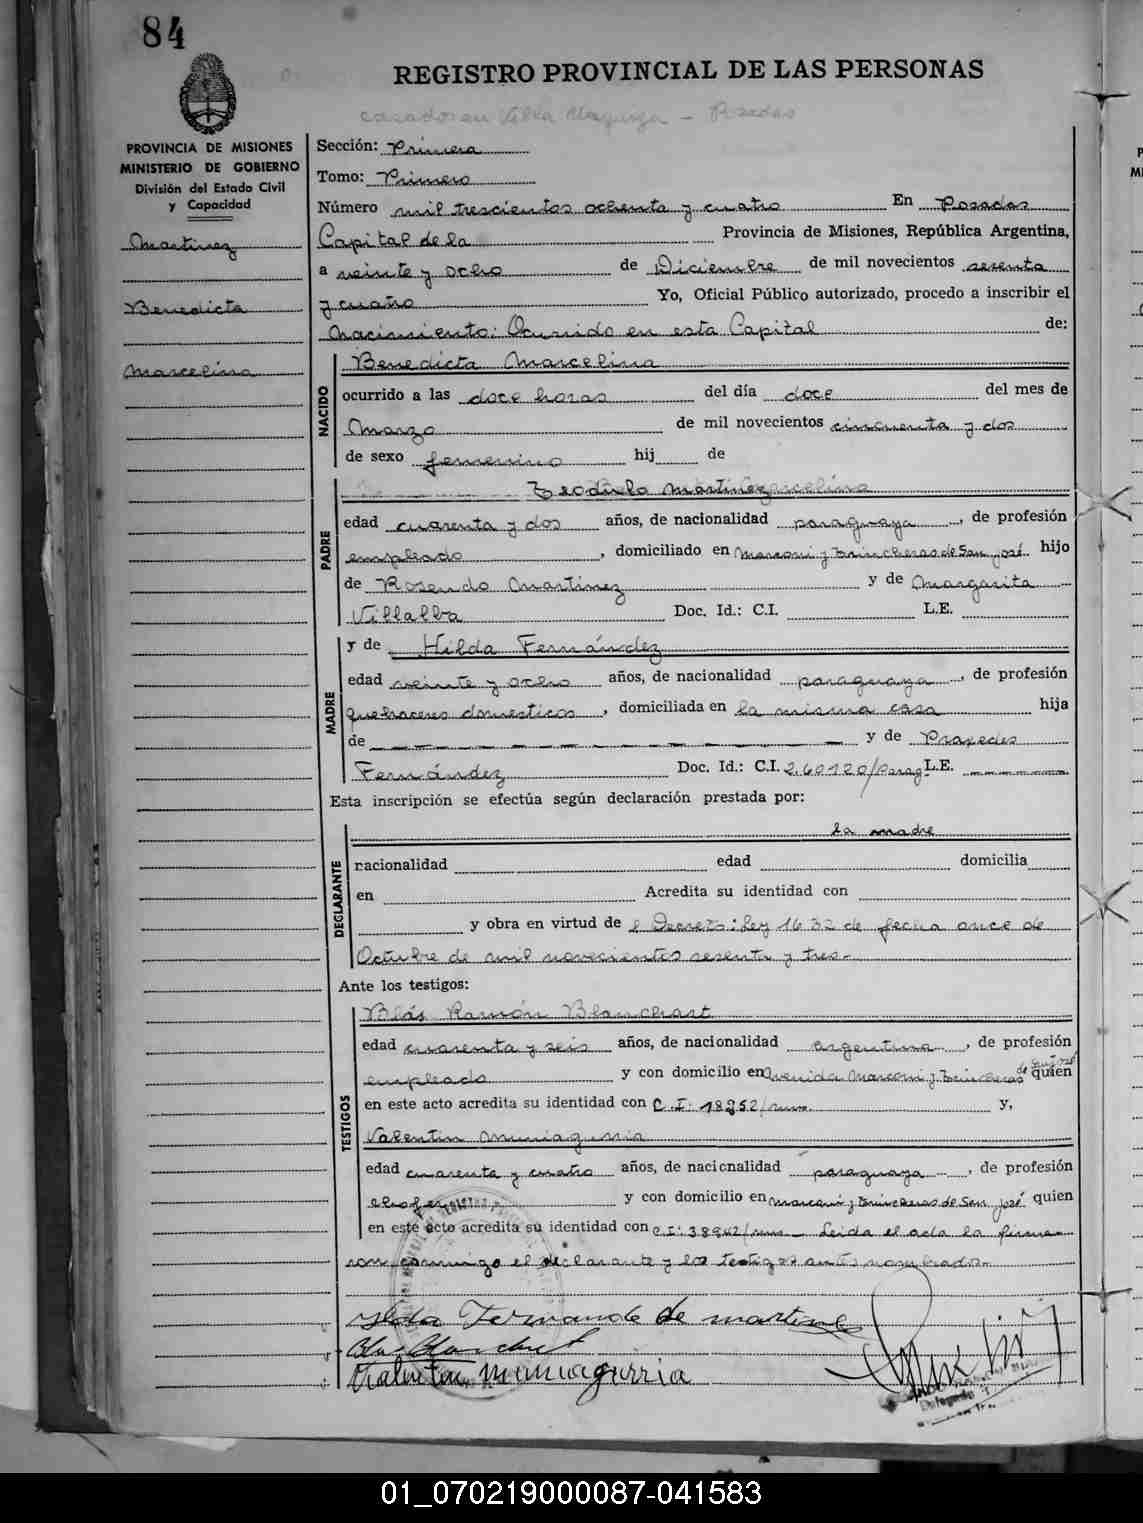 84
REGISTRO PROVINCIAL DE LAS PERSONAS
casados en Villa Urquiza - Posadas
PROVINCIA DE MISIONES
MINISTERIO DE GOBIERNO
División del Estado Civil
y Capacidad
Martinez
Benedicta
Marcelina
Sección: Primera
Tomo: Primero
Número mil trescientos ochenta y cuatro En Posadas
Capital de la Provincia de Misiones, República Argentina,
a veinte y ocho de Diciembre de mil novecientos sesenta
y cuatro Yo, Oficial Público autorizado, procedo a inscribir el
Nacimiento: Ocurrido en esta Capital de:
NACIDO
Benedicta Marcelina
ocurrido a las doce horas del día doce del mes de
Marzo de mil novecientos cincuenta y dos
de sexo femenino hij de
PADRE
Teodulo Martinez
edad cuarenta y dos años, de nacionalidad paraguaya, de profesión
empleado, domiciliado en Marconi y Trincheras de San José hijo
de Rosendo Martinez y de Margarita
Villalba Doc. Id.: C.I. L.E.
MADRE
y de Hilda Fernández
edad veinte y ocho años, de nacionalidad paraguaya, de profesión
quehaceres domesticos, domiciliada en la misma casa hija
de y de Praxedes
Fernández Doc. Id.: C.I. 260120/Parag L.E.
Esta inscripción se efectúa según declaración prestada por:
DECLARANTE
la madre
nacionalidad edad domicilia
en Acredita su identidad con
y obra en virtud de l Decreto: Ley 1632 de fecha once de
Octubre de mil novecientos sesenta y tres.-
Ante los testigos:
TESTIGOS
Blás Ramón Blanchart
edad cuarenta y seis años, de nacionalidad argentina, de profesión
empleado y con domicilio en Avenida Marconi y Trincheras de San José quien
en este acto acredita su identidad con C.I: 18952/mns. y,
Valentin Muniagurria
edad cuarenta y cuatro años, de nacionalidad paraguaya, de profesión
chofer y con domicilio en Marconi y Trincheras de San José quien
en este acto acredita su identidad con C.I: 38942/mns.- Leida el acta la firma-
ron conmigo el declarante y los testigos antes nombrados.-
Ilda Fernande de martinez
Blas Blanchart
Valentin Muniagurria
Delegado
01_070219000087-041583